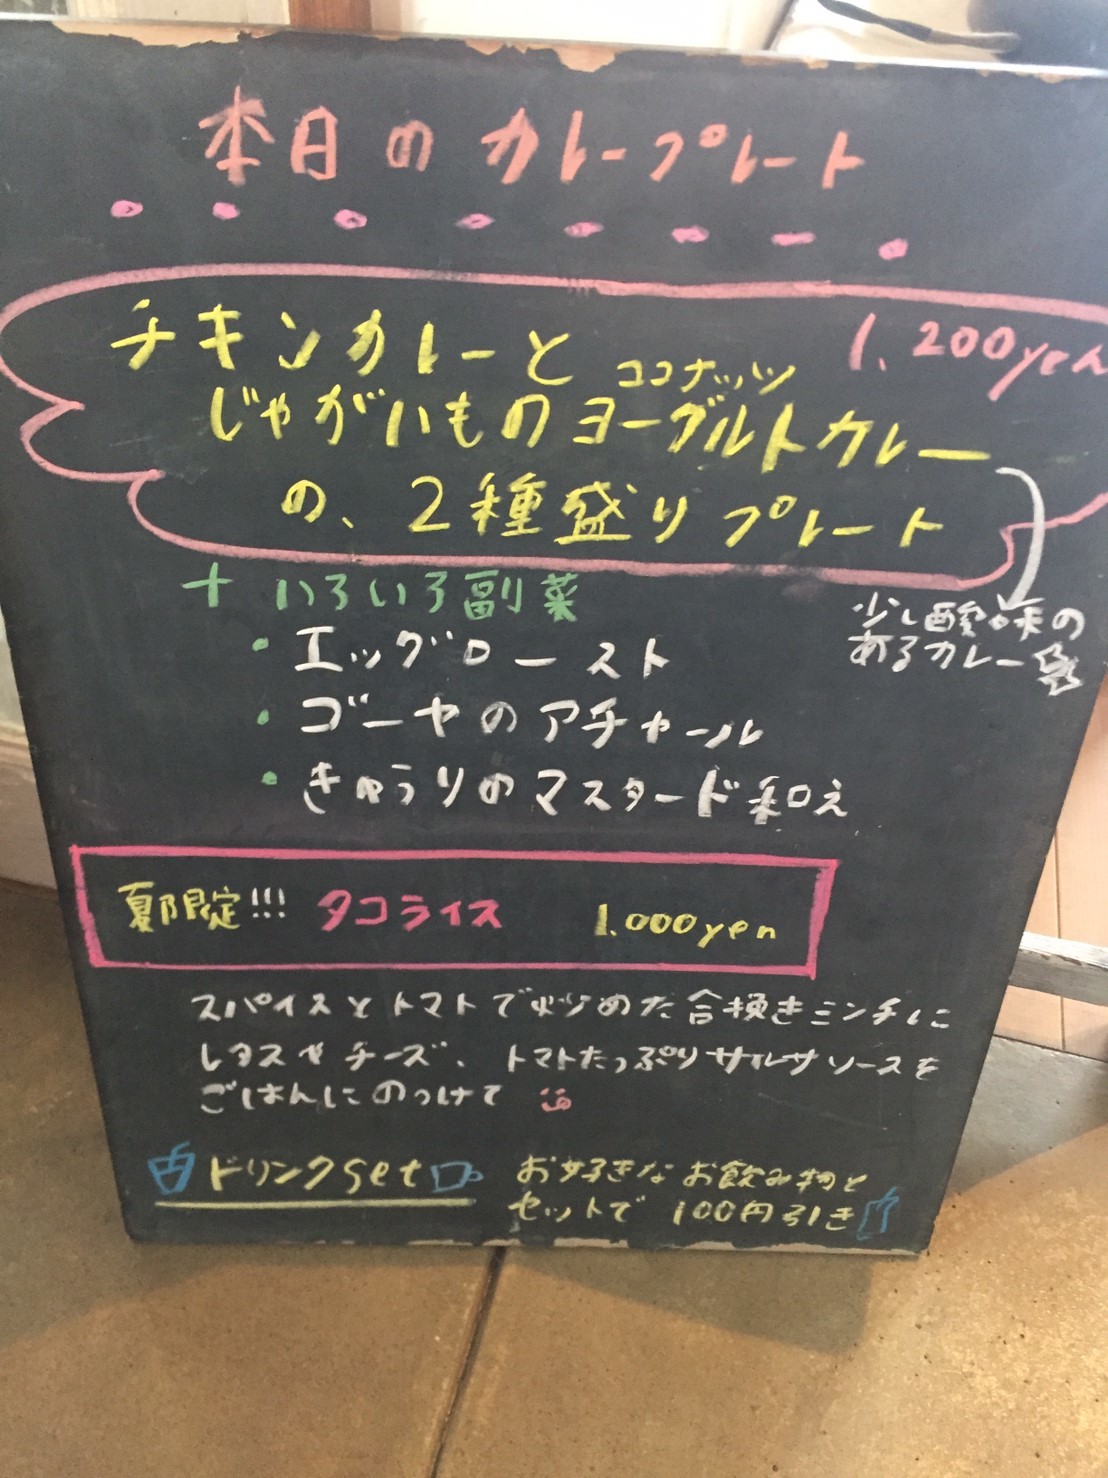 本日のカレープレート
チキンカレーと
1,200yen
ココナッツ
じゃがいものヨーグルトカレー
の、2種盛りプレート
+ いろいろ副菜
少し酸味の
あるカレー
・エッグロースト
・ゴーヤのアチャール
・きゅうりのマスタード和え
夏限定!!! タコライス 1.000yen
スパイスとトマトで炒めた合挽きミンチに
レタスやチーズ、トマトたっぷりサルサソースを
ごはんにのっけて
ドリンクset
お好きなお飲み物と
セットで 100円引き